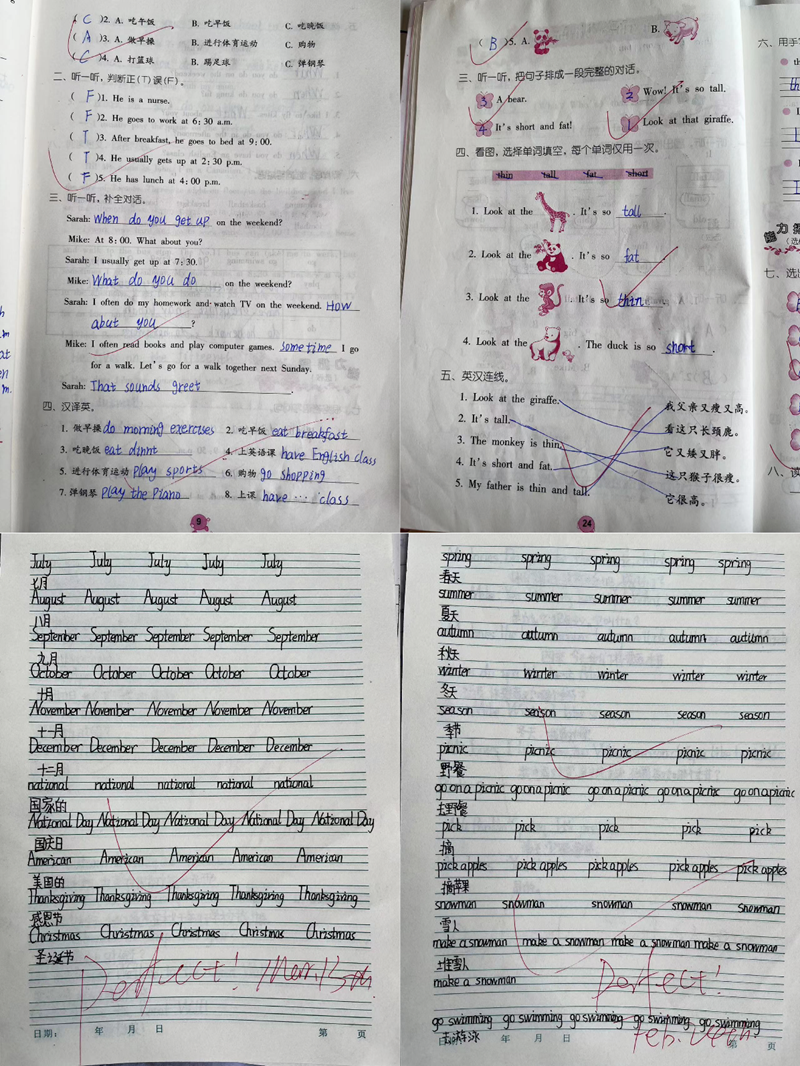 ( C )2. A. 吃午饭 B. 吃早饭 C. 吃晚饭
( A )3. A. 做早操 B. 进行体育运动 C. 购物
( C )4. A. 打篮球 B. 踢足球 C. 弹钢琴
二、听一听，判断正(T)误(F)。
( F )1. He is a nurse.
( F )2. He goes to work at 6:30 a.m.
( T )3. After breakfast, he goes to bed at 9:00.
( T )4. He usually gets up at 2:30 p.m.
( F )5. He has lunch at 4:00 p.m.
三、听一听，补全对话。
Sarah: When do you get up on the weekend?
Mike: At 8:00. What about you?
Sarah: I usually get up at 7:30.
Mike: What do you do on the weekend?
Sarah: I often do my homework and watch TV on the weekend. How
abut you ?
Mike: I often read books and play computer games. sometime I go
for a walk. Let's go for a walk together next Sunday.
Sarah: That sounds greet .
四、汉译英。
1. 做早操 do morning exercises 2. 吃早饭 eat breakfast
3. 吃晚饭 eat dinnt 4. 上英语课 have English class
5. 进行体育运动 play sports 6. 购物 go shopping
7. 弹钢琴 play the piano 8. 上课 have … class
9
( B )5. A. B.
三、听一听，把句子排成一段完整的对话。
3 A bear. 2 Wow! It's so tall.
4 It's short and fat! 1 Look at that giraffe.
四、看图，选择单词填空，每个单词仅用一次。
thin tall fat short
1. Look at the . It's so tall .
2. Look at the . It's so fat .
3. Look at the . It's so thin .
4. Look at the . The duck is so short .
五、英汉连线。
1. Look at the giraffe. 我父亲又瘦又高。
2. It's tall. 看这只长颈鹿。
3. The monkey is thin. 它又矮又胖。
4. It's short and fat. 这只猴子很瘦。
5. My father is thin and tall. 它很高。
24
六、用手写
七、选
八、读
July July July July July
七月
August August August August August
八月
September September September September September
九月
October October October October October
十月
November November November November November
十一月
December December December December December
十二月
national national national national national
国家的
National Day National Day National Day National Day National Day
国庆日
American American American American American
美国的
Thanksgiving Thanksgiving Thanksgiving Thanksgiving Thanksgiving
感恩节
Christmas Christmas Christmas Christmas Christmas
圣诞节
Perfect!
日期： 年 月 日 第 页
spring spring spring spring spring
春天
summer summer summer summer summer
夏天
autumn autumn autumn autumn autumn
秋天
winter winter winter winter winter
冬天
season season season season season
季节
picnic picnic picnic picnic picnic
野餐
go on a picnic go on a picnic go on a picnic go on a picnic go on a picnic
去野餐
pick pick pick pick pick
摘
pick apples pick apples pick apples pick apples pick apples
摘苹果
snowman snowman snowman snowman snowman
雪人
make a snowman make a snowman make a snowman make a snowman
堆雪人
make a snowman
Perfect!
go swimming go swimming go swimming go swimming go swimming
去游泳 年 月 日 第 页